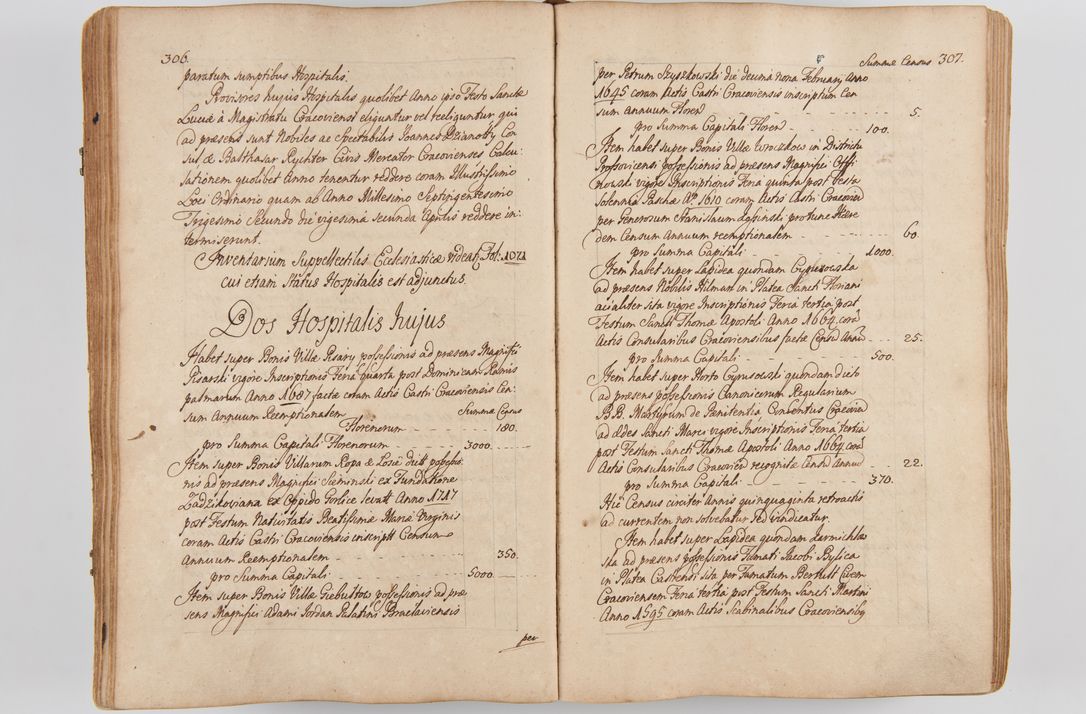 306.
paratum sumptibus Hospitalis.
Provisores hujus Hospitalis quolibet Anno ipso Festo Sanctæ
Luciæ à Magistratu Cracoviensi eliguntur vel reeliguntur qui
ad præsens sunt Nobiles ac Spectabilis Joannes Dzianotty Con
sul & Balthasar Rychter Civis Mercator Cracovienses Calcu:
lationem quolibet Anno tenentur reddere coram Illustrissimo
Loci Ordinario quam ab Anno Millesimo Septingentesimo
Trigesimo Secundo die vigesima secunda Aprilis reddere in:
termiserunt.
Inventarium Suppellectilis Ecclesiasticæ videatr Fol: 1071
cui etiam Status Hospitalis est adjunctus.
Dos Hospitalis hujus
Habet super Bonis Villæ Pisary possessionis ad præsens Magnifici
Pisarski vigore Inscriptionis Feria Quarta post Dominicam Ramis
palmarum Anno 1687 factæ coram Actis Castri Cracoviensis Cen-
sum Annuum Reemptionalem Summa Census
Florenorum 180.
pro Summa Capitali Florenorum 3000.
Item super Bonis Villarum Ropa & Losie possessio
nis ad præsens Magnifici Sieminski ex Fundatione
Zadzikoviana ex Oppido Gorlice levatt Anno 1717
post Festum Nativitatis Beatissimæ Mariæ Virginis
coram Actis Castri Cracoviensis inscriptt Censum
Annuum Reemptionalem 350.
pro Summa Capitali 5000.
Item super Bonis Villæ Giebultow possessionis ad præ
sens Magnifici Adami Jordan Palatini Braclaviensis
per
Summæ Census 307.
per Petrum Szyszkowski die decima nona February Anno
1645 coram Actis Castri Cracoviensis inscriptum Cen
sum annuum Floren 5.
pro Summa Capitali Floren 100.
Item habet super Bonis Villæ in Districtu
Proszovicensi possessionis ad præsens Magnifici
nowski vigore Inscriptionis Feria quinta post Festa
Solennia Paschæ Ao 1610 coram Actis Castri Cracovien
per Generosum Stanislaum protunc Hære
dem Censum Annuum reemptionalem 60.
pro Summa Capitali 1000.
Item habet super Lapidea quondam Cyrusowska
ad præsens Nobilis Hilmart in Platea Sancti Floriani
aciáliter sita vigore Inscriptionis Feria tertia post
Festum Sancti Thomæ Apostoli Anno 1664. corā
Actis Consularibus Cracoviensibus factæ Censu Annū 25.
pro Summa Capitali 500.
Item habet super Horto Cyrusowski quondam dicto
ad præsens possessionis Canonicorum Regularium
B.B. Martyrum de Penitentia Conventus Cracovien
ad Ædes Sancti Marci vigore Inscriptionis Feria tertia
post Festum Sancti Thomæ Apostoli Anno 1664. corā
Actis Consularibus Cracovien recognitæ Censu Annuu 22.
pro Summa Capitali 370.
Hic Census circiter Annis quinquaginta retroactis
ad currentem non solvebatur sed vindicatur.
Item habet super Lapidea quondam Jarmichlas
ska ad præsens possessionis Famati Jacobi Bylica
in Platea Castrensi sita per Famatum Bernett Civem
Cracoviensem Feria tertia post Festum Sancti Martini
Anno 1595 coram Actis Scabinalibus Cracoviensibq